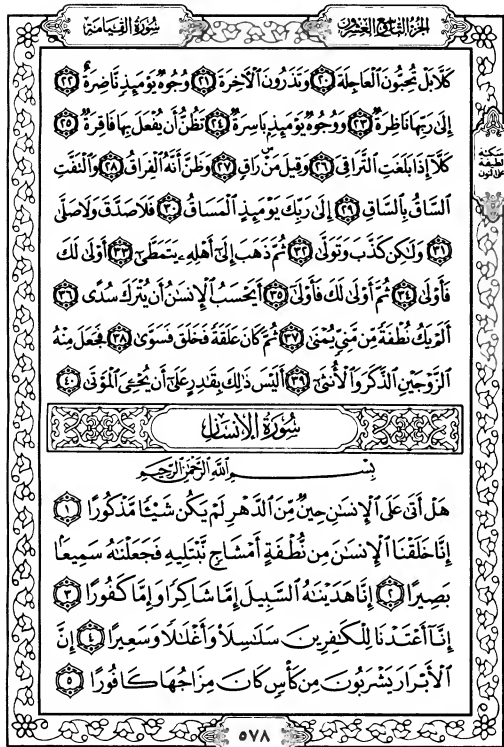 سُورَةُ القِيَامَةِ
الجُزْءُ التَّاسِعُ وَالعِشْرُونَ
كَلَّا بَلْ تُحِبُّونَ ٱلْعَاجِلَةَ ٢٠ وَتَذَرُونَ ٱلْآخِرَةَ ٢١ وُجُوهٌ يَوْمَئِذٍ نَّاضِرَةٌ ٢٢
إِلَىٰ رَبِّهَا نَاظِرَةٌ ٢٣ وَوُجُوهٌ يَوْمَئِذٍ بَاسِرَةٌ ٢٤ تَظُنُّ أَن يُفْعَلَ بِهَا فَاقِرَةٌ ٢٥
كَلَّا إِذَا بَلَغَتِ ٱلتَّرَاقِىَ ٢٦ وَقِيلَ مَنْ ۜ رَاقٍ ٢٧ وَظَنَّ أَنَّهُ ٱلْفِرَاقُ ٢٨ وَٱلْتَفَّتِ
ٱلسَّاقُ بِٱلسَّاقِ ٢٩ إِلَىٰ رَبِّكَ يَوْمَئِذٍ ٱلْمَسَاقُ ٣٠ فَلَا صَدَّقَ وَلَا صَلَّىٰ
٣١ وَلَٰكِن كَذَّبَ وَتَوَلَّىٰ ٣٢ ثُمَّ ذَهَبَ إِلَىٰٓ أَهْلِهِۦ يَتَمَطَّىٰٓ ٣٣ أَوْلَىٰ لَكَ
فَأَوْلَىٰ ٣٤ ثُمَّ أَوْلَىٰ لَكَ فَأَوْلَىٰٓ ٣٥ أَيَحْسَبُ ٱلْإِنسَٰنُ أَن يُتْرَكَ سُدًى ٣٦
أَلَمْ يَكُ نُطْفَةً مِّن مَّنِىٍّ يُمْنَىٰ ٣٧ ثُمَّ كَانَ عَلَقَةً فَخَلَقَ فَسَوَّىٰ ٣٨ فَجَعَلَ مِنْهُ
ٱلزَّوْجَيْنِ ٱلذَّكَرَ وَٱلْأُنثَىٰٓ ٣٩ أَلَيْسَ ذَٰلِكَ بِقَٰدِرٍ عَلَىٰٓ أَن يُحْـِۧىَ ٱلْمَوْتَىٰ ٤٠
سُورَةُ الإِنسَانِ
بِسْمِ ٱللَّهِ ٱلرَّحْمَٰنِ ٱلرَّحِيمِ
هَلْ أَتَىٰ عَلَى ٱلْإِنسَٰنِ حِينٌ مِّنَ ٱلدَّهْرِ لَمْ يَكُن شَيْـًٔا مَّذْكُورًا ١
إِنَّا خَلَقْنَا ٱلْإِنسَٰنَ مِن نُّطْفَةٍ أَمْشَاجٍ نَّبْتَلِيهِ فَجَعَلْنَٰهُ سَمِيعًۢا
بَصِيرًا ٢ إِنَّا هَدَيْنَٰهُ ٱلسَّبِيلَ إِمَّا شَاكِرًا وَإِمَّا كَفُورًا ٣
إِنَّآ أَعْتَدْنَا لِلْكَٰفِرِينَ سَلَٰسِلَا۟ وَأَغْلَٰلًا وَسَعِيرًا ٤ إِنَّ
ٱلْأَبْرَارَ يَشْرَبُونَ مِن كَأْسٍ كَانَ مِزَاجُهَا كَافُورًا ٥
سكتة
لطيفة
على النون
٥٧٨